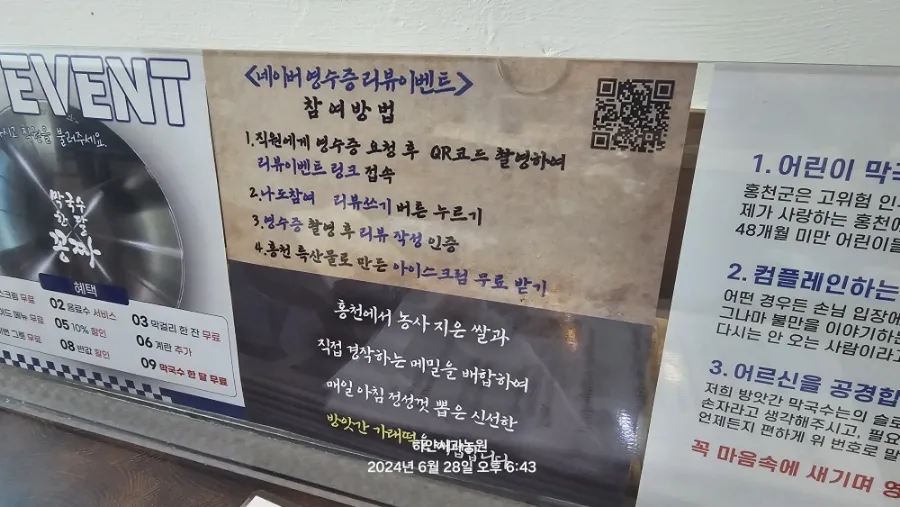 EVENT
불러주세요
막국수
한 달
공짜
혜택
스크림 무료
02 음료수 서비스
03 막걸리 한 잔 무료
이드 메뉴 무료
05 10% 할인
06 계란 추가
08 반값 할인
09 막국수 한 달 무료
<네이버 영수증 리뷰이벤트>
참여방법
1.직원에게 영수증 요청 후 QR코드 촬영하여
리뷰이벤트 링크 접속
2.나도참여 리뷰쓰기 버튼 누르기
3.영수증 촬영 후 리뷰 작성 인증
4.홍천 특산물로 만든 아이스크림 무료 받기
홍천에서 농사 지은 쌀과
직접 경작하는 메밀을 배합하여
매일 아침 정성껏 뽑은 신선한
방앗간 가래떡
1. 어린이 막
홍천군은 고위험 인
제가 사랑하는 홍천에
48개월 미만 어린이들
2. 컴플레인하는
어떤 경우든 손님 입장에
그나마 불만을 이야기하는
다시는 안 오는 사람이라고
3. 어르신을 공경합
저희 방앗간 막국수는의 슬로
손자라고 생각해주시고, 필요
언제든지 편하게 위 번호로 말
꼭 마음속에 새기며 영
하얀사과농원
2024년 6월 28일 오후 6:43